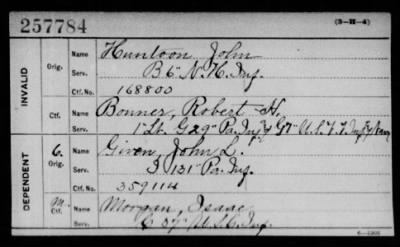 257784
(3-H-4)
INVALID
Orig.
Name Huntoon, John
Serv. B 6" N.H. Inf.
Ctf. No. 168800
Ctf.
Name Bonner, Robert H.
Serv. 1" Lt. G 29" Pa. Inf. & G 7" U.S.V.V. Inf. & Navy
DEPENDENT
6.
Orig.
Name Given, John L.
Serv. I 131" Pa. Inf.
Ctf. No. 359114
M.
Ctf.
Name Morgan, Isaac
Serv. C 37" U.S.C. Inf.